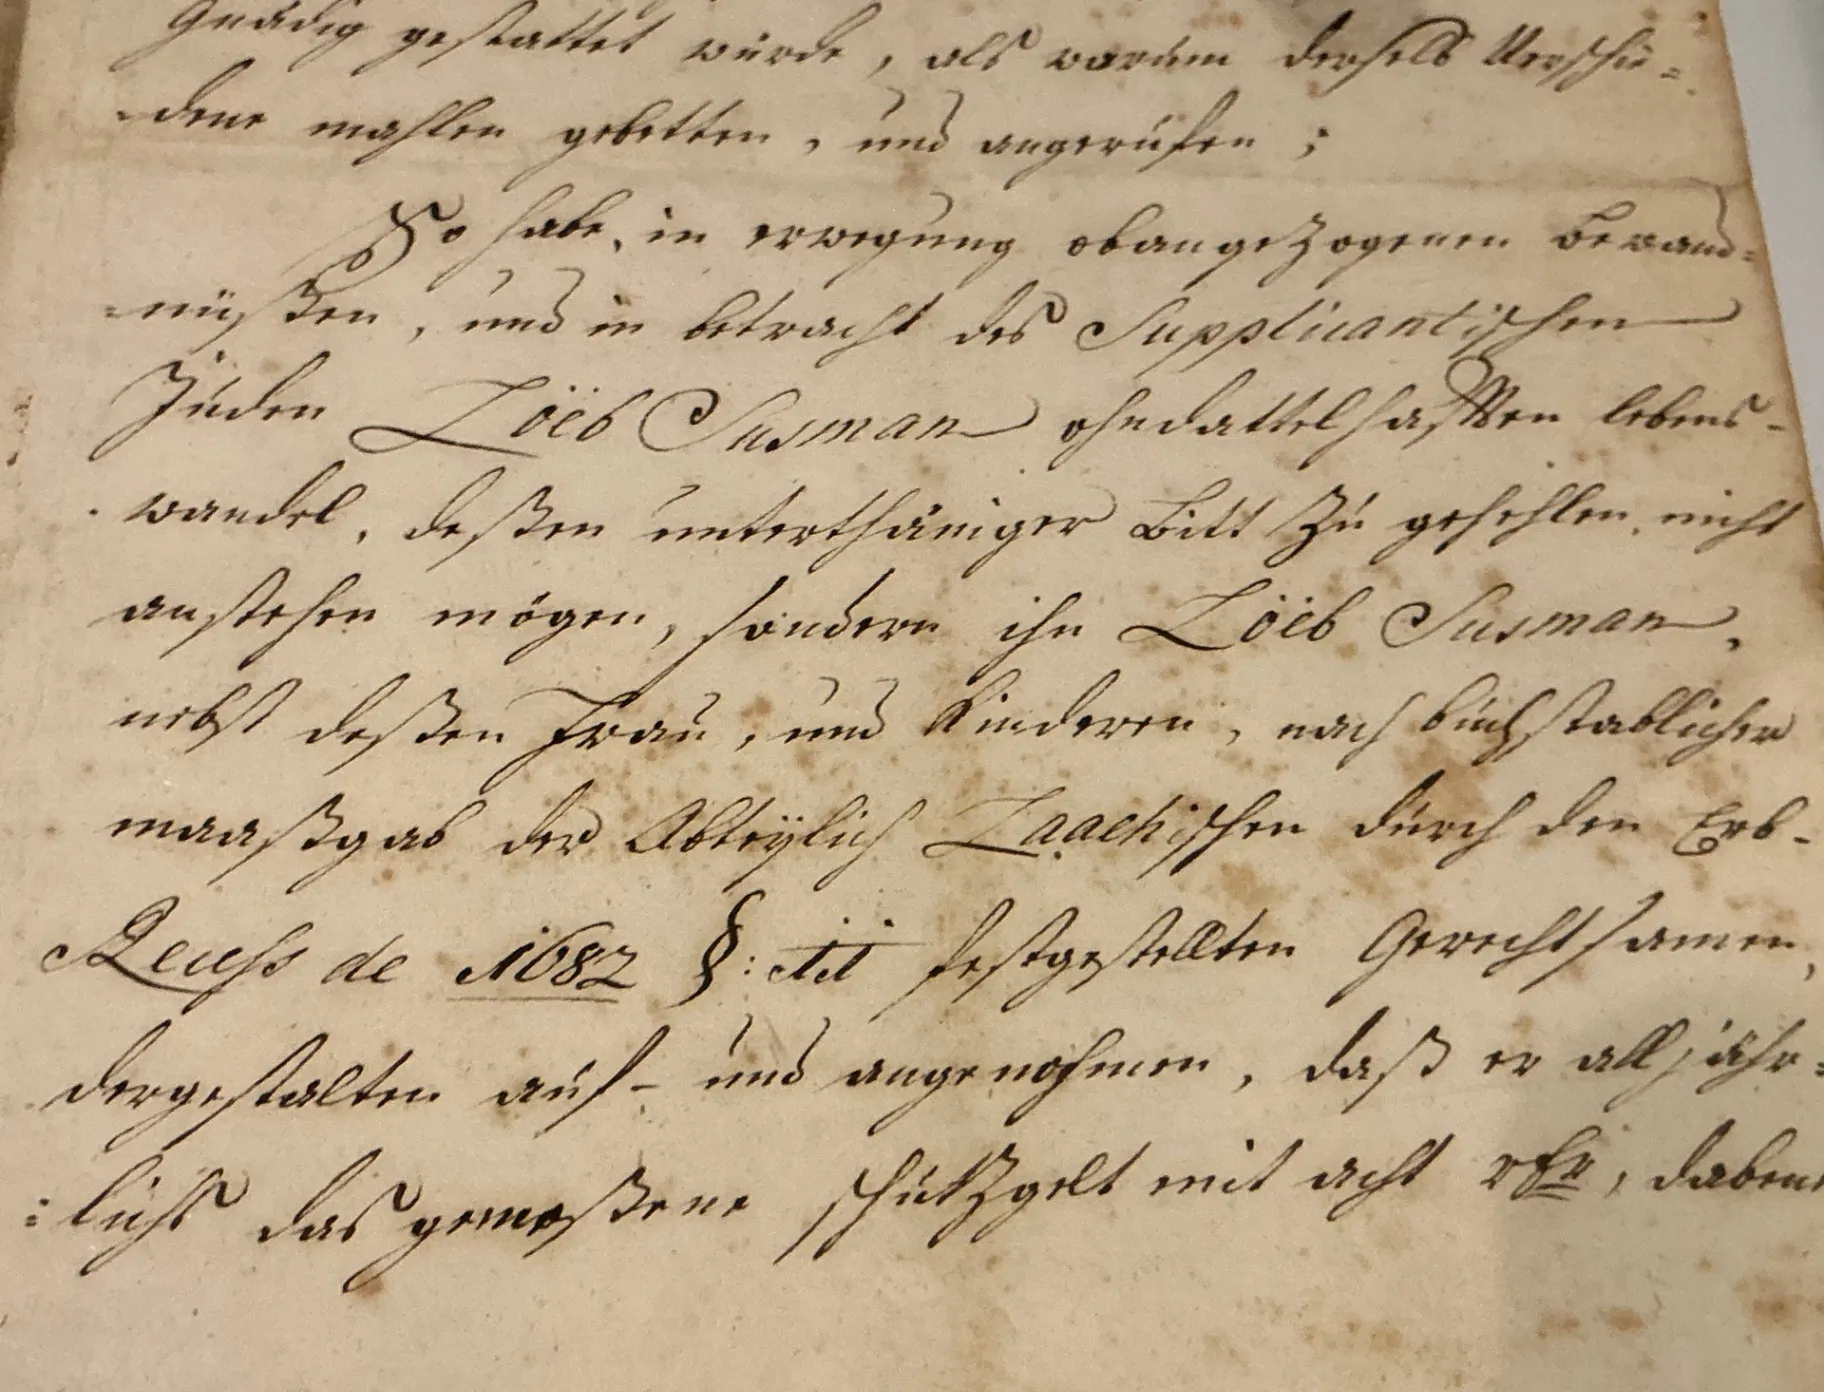 Gnädig gestattet würde, als warum derselb Verschie=
-dene mahlen gebetten, und angerufen;
So habe, in erwegung obangezogenen Bewand=
=nüßen, und in betracht des Supplicantischen
Juden Löeb Susman ohndattelhafften lebens-
wandel, deßen unterthäniger Bitt zu gefehlen, nicht
anstehen mögen, sondern ihn Löeb Susman,
nebst deßen Frau, und Kinderen, nach buchstablicher
maaßgab der Abteylich Laachischen durch den Erb-
Recess de 1682 §: 11 festgestellten Gerechtsamen,
dergestalten auf- und angenohmen, daß er alljähr=
=lichs das gemeßene schutzgelt mit acht rthr, daben